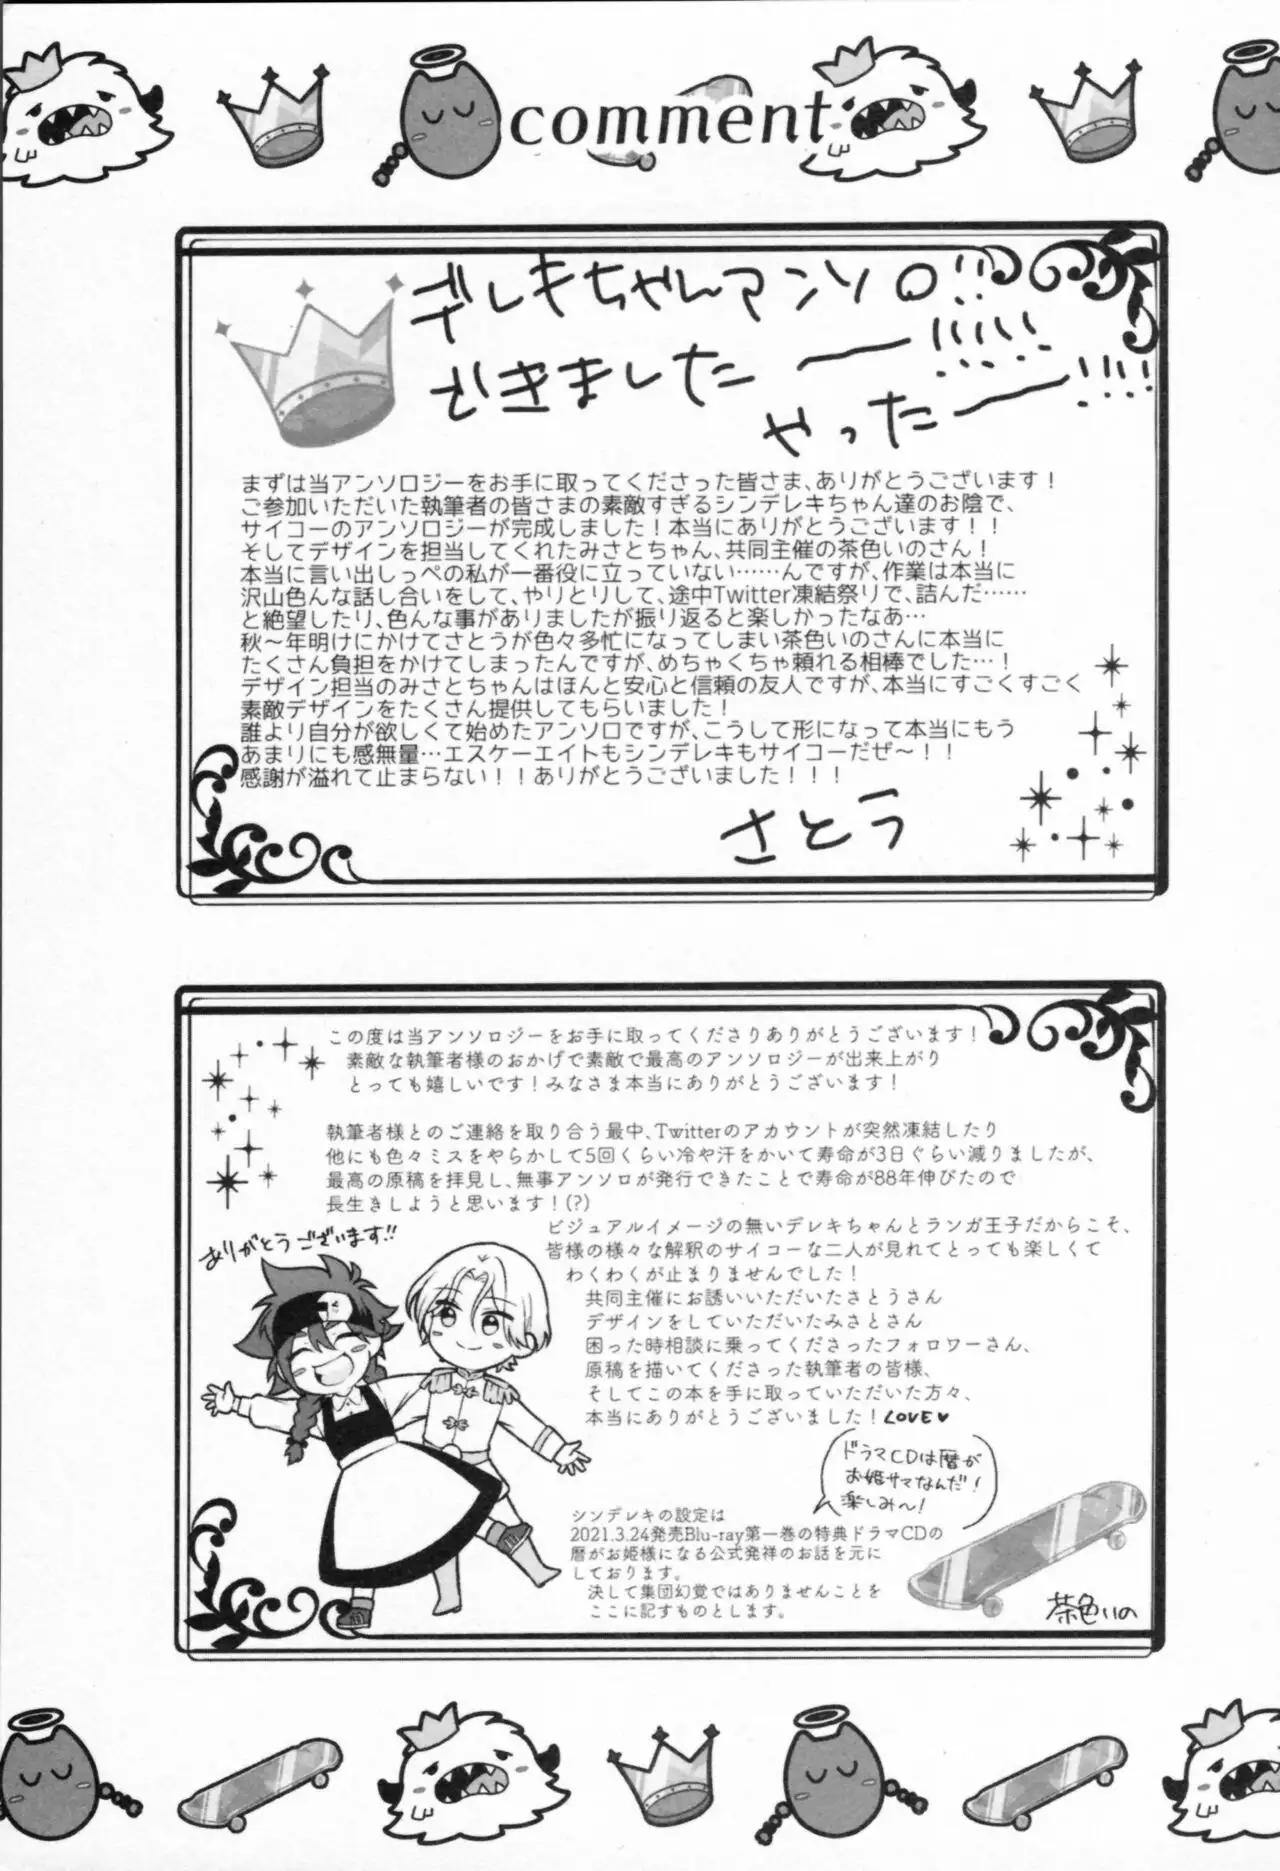 comment
デレキちゃんアンソロ!!
できましたー!!!!!
やったー!!!!
まずは当アンソロジーをお手に取ってくださった皆さま、ありがとうございます!
ご参加いただいた執筆者の皆さまの素敵すぎるシンデレキちゃん達のお陰で、
サイコーのアンソロジーが完成しました!本当にありがとうございます!!
そしてデザインを担当してくれたみさとちゃん、共同主催の茶色いのさん!
本当に言い出しっぺの私が一番役に立っていない……んですが、作業は本当に
沢山色んな話し合いをして、やりとりして、途中Twitter凍結祭りで、詰んだ……
と絶望したり、色んな事がありましたが振り返ると楽しかったなあ…
秋～年明けにかけてさとうが色々多忙になってしまい茶色いのさんに本当に
たくさん負担をかけてしまったんですが、めちゃくちゃ頼れる相棒でした…!
デザイン担当のみさとちゃんはほんと安心と信頼の友人ですが、本当にすごくすごく
素敵デザインをたくさん提供してもらいました!
誰より自分が欲しくて始めたアンソロですが、こうして形になって本当にもう
あまりにも感無量…エスケーエイトもシンデレキもサイコーだぜ～!!
感謝が溢れて止まらない!!ありがとうございました!!!
さとう
この度は当アンソロジーをお手に取ってくださりありがとうございます!
素敵な執筆者様のおかげで素敵で最高のアンソロジーが出来上がり
とっても嬉しいです!みなさま本当にありがとうございます!
執筆者様とのご連絡を取り合う最中、Twitterのアカウントが突然凍結したり
他にも色々ミスをやらかして5回くらい冷や汗をかいて寿命が3日ぐらい減りましたが、
最高の原稿を拝見し、無事アンソロが発行できたことで寿命が88年伸びたので
長生きしようと思います!(?)
ありがとうございます!!
ビジュアルイメージの無いデレキちゃんとランガ王子だからこそ、
皆様の様々な解釈のサイコーな二人が見れてとっても楽しくて
わくわくが止まりませんでした!
共同主催にお誘いいただいたさとうさん
デザインをしていただいたみさとさん
困った時相談に乗ってくださったフォロワーさん、
原稿を描いてくださった執筆者の皆様、
そしてこの本を手に取っていただいた方々、
本当にありがとうございました!LOVE♥
ドラマCDは暦が
お姫サマなんだ!
楽しみ〜!
シンデレキの設定は
2021.3.24発売Blu-ray第一巻の特典ドラマCDの
暦がお姫様になる公式発祥のお話を元に
しております。
決して集団幻覚ではありませんことを
ここに記すものとします。
茶色いの